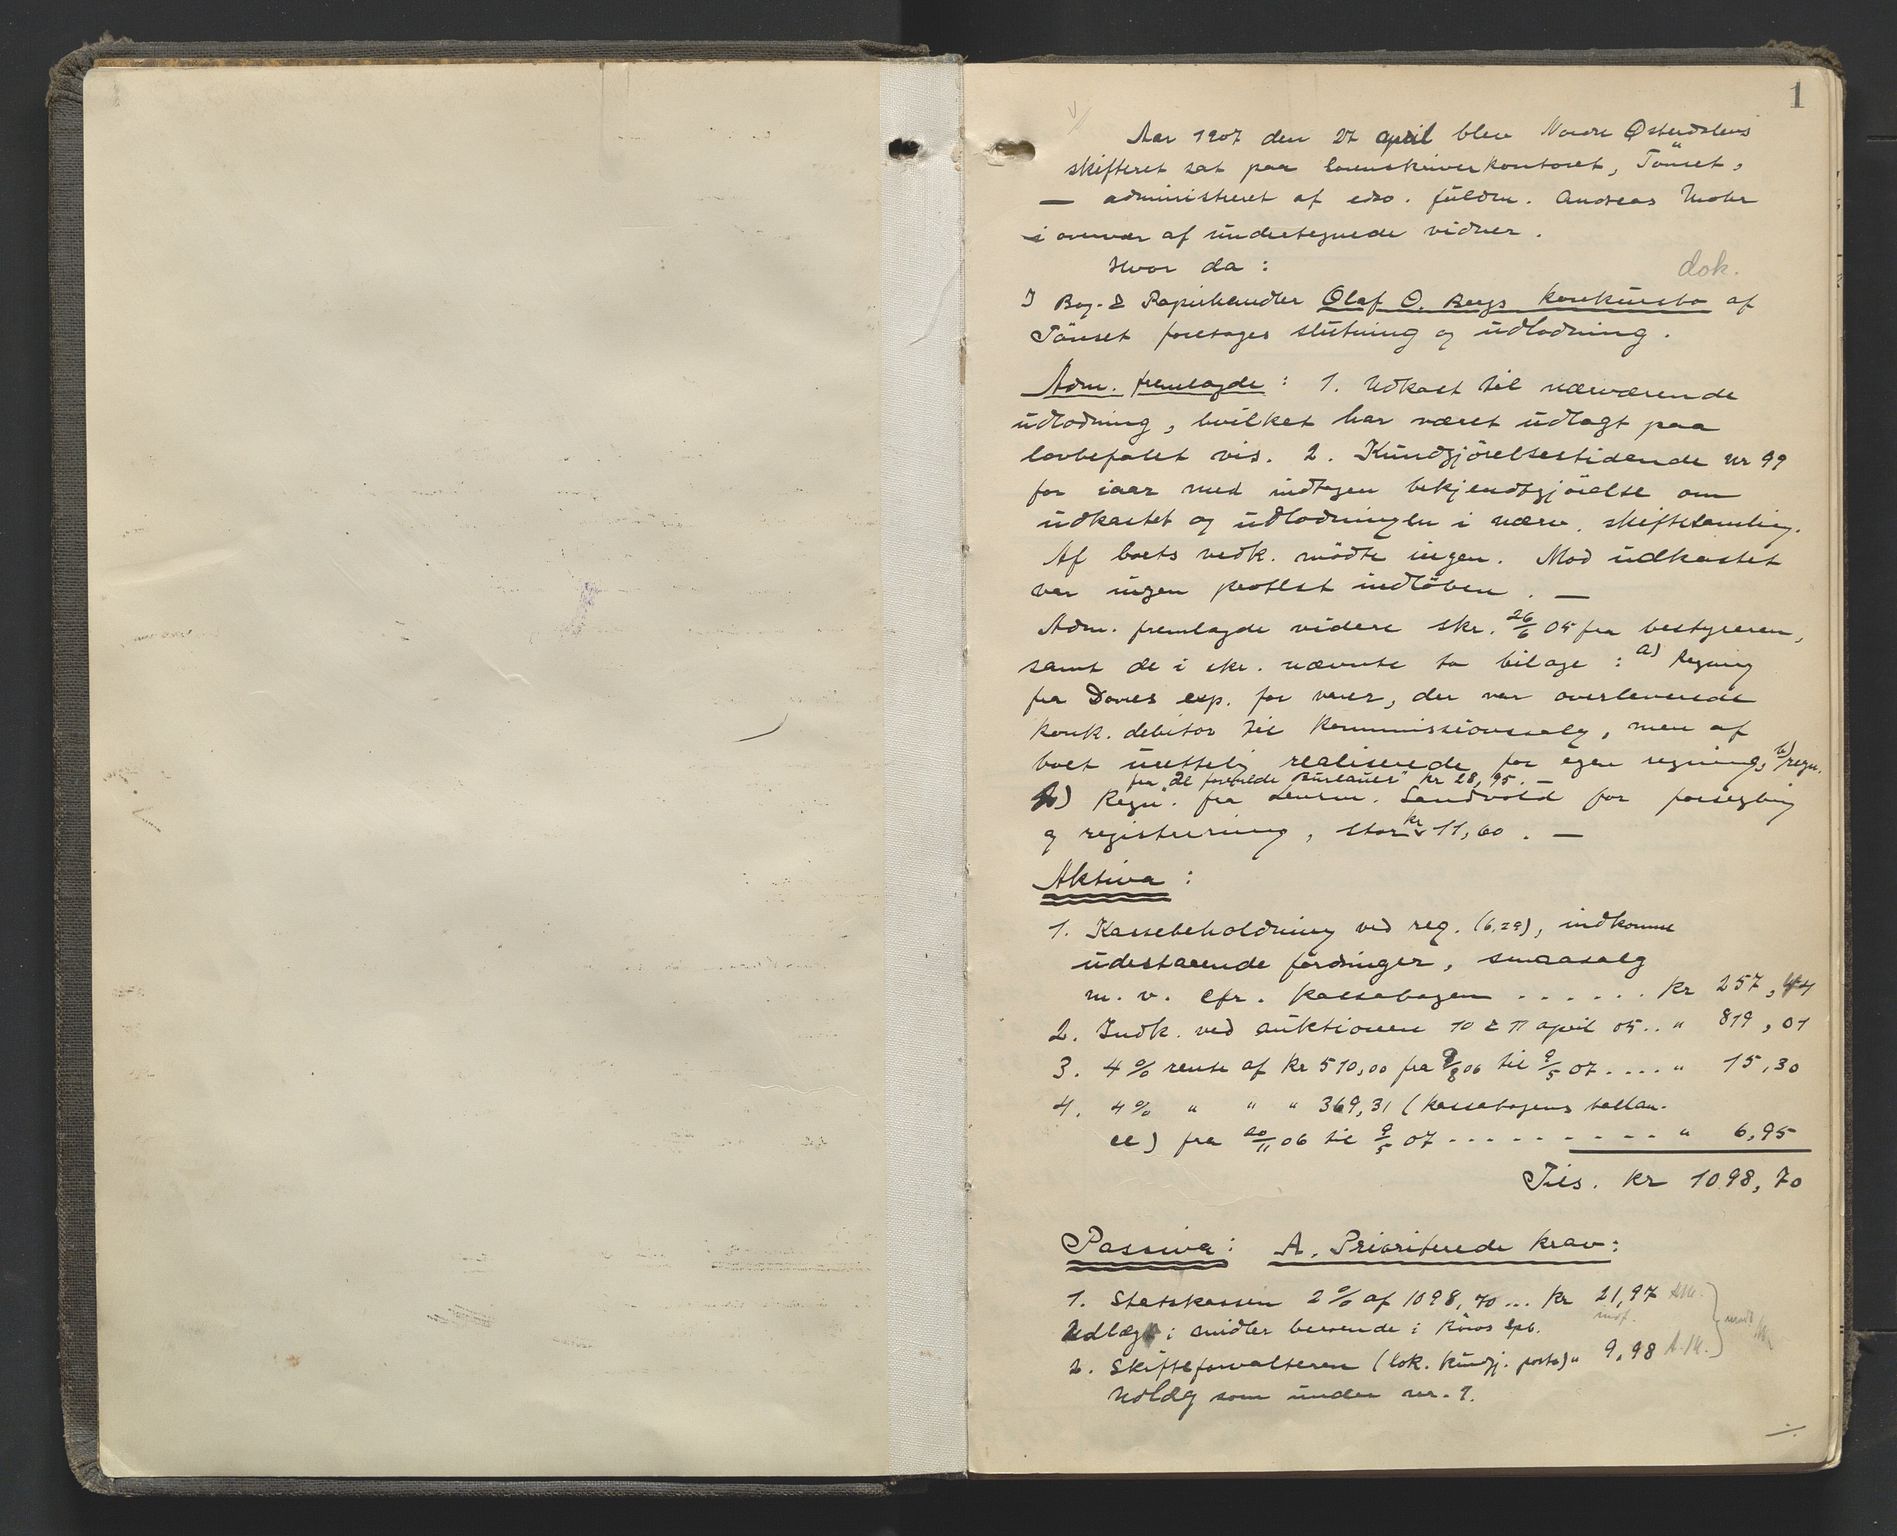 1
Aar 1907 den 27 april blev Nordre Østerdalens
skifteret sat paa sorenskriverkontoret, Tönset,
— administreret af edsv. fuldm. Andreas Mohr
i overvær af undertegnede vidner.
Hvor da:
dok.
I Bog- & Papirhandler Olaf O. Bergs konkursbo af
Tönset foretages slutning og udlodning.
Adm. fremlagde: 1. Udkast til nærværende
udlodning, hvilket har været udlagt paa
lovbefalet vis. 2. Kundgjörelsestidende nr 99
for iaar med indtagen bekjendtgjörelse om
udkastet og udlodningen i nærv. skiftesamling.
Af boets vedk. mödte ingen. Mod udkastet
var ingen protest indlöben. —
Adm. fremlagde videre skr. 26/6 05 fra bestyreren,
samt de i skr. nævnte to bilage: a) Regning
fra Doves exp. for varer, der var overleverede
konk. debitor til kommissionssalg, men af
boet urettelig realiserede for egen regning, b) regn.
fra "de forenede Bureauer" kr 28,95. —
Regn. fra lensm. Sandvold for forsegling
og registrering, stor kr 11,60. —
Aktiva:
1. Kassebeholdning ved reg. (6.29), indkomne
udestaaende fordringer, smaasalg
m. v. cfr. kassabogen . . . . . . kr 257,44
2. Indk. ved auktionen 10 & 11 april 05.. " 819,01
3. 4 % rente af kr 510,00 fra 9/8 06 til 9/5 07 .... " 15,30
4. 4 % " " " 369,31 (kassabogens ballan-
ce) fra 20/11 06 til 9/5 07 . . . . . . . . . . " 6,95
Tils. kr 1098,70
Passiva: A. Prioriterede krav:
1. Statskassen 2 % af 1098,70 ... kr 21,97
Udlæg i midler beroende i Röros Spb.
2. Skifteforvalteren (lok. kundgj. porto) " 9,98 A.M.
Udlæg som under nr. 1.